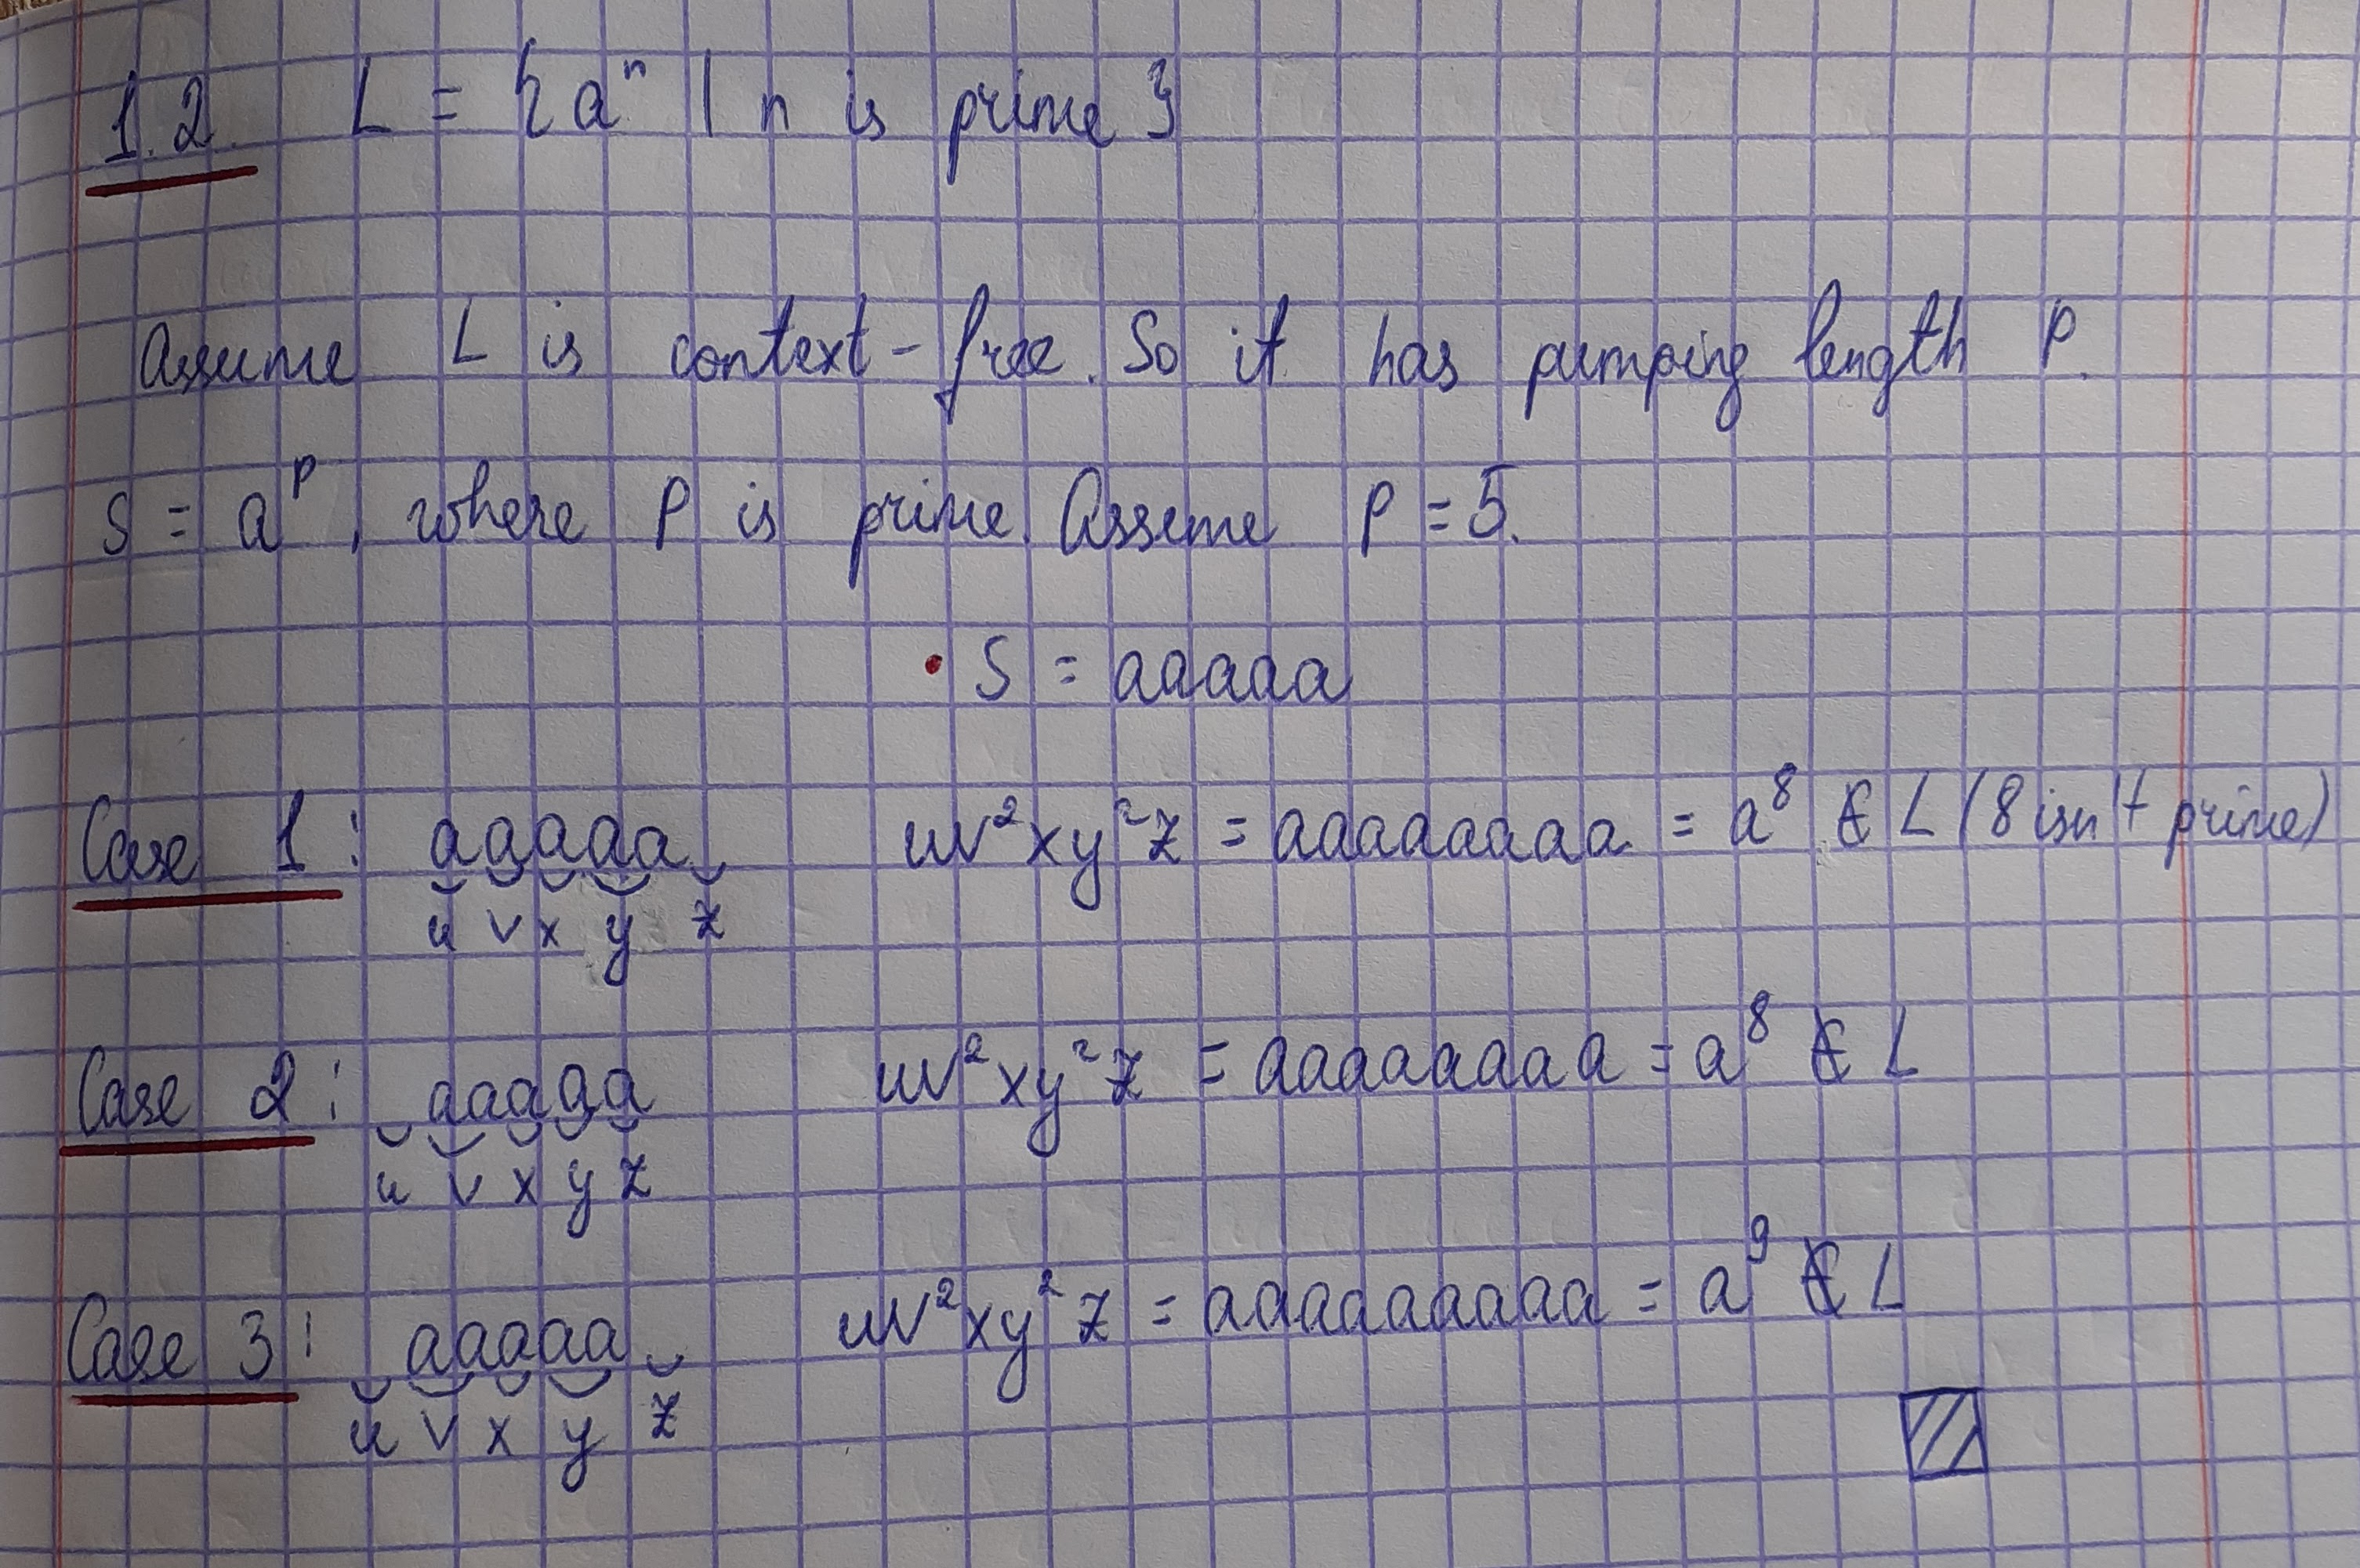 1.2. L = {aⁿ | n is prime}
Assume L is context-free. So it has pumping length P.
S = aᴾ, where P is prime. Assume P = 5.
• S = aaaaa
Case 1: aaaaa uv²xy²z = aaaaaaaa = a⁸ ∉ L (8 isn't prime)
u v x y z
Case 2: aaaaa uv²xy²z = aaaaaaaa = a⁸ ∉ L
u v x y z
Case 3: aaaaa uv²xy²z = aaaaaaaaa = a⁹ ∉ L
u v x y z